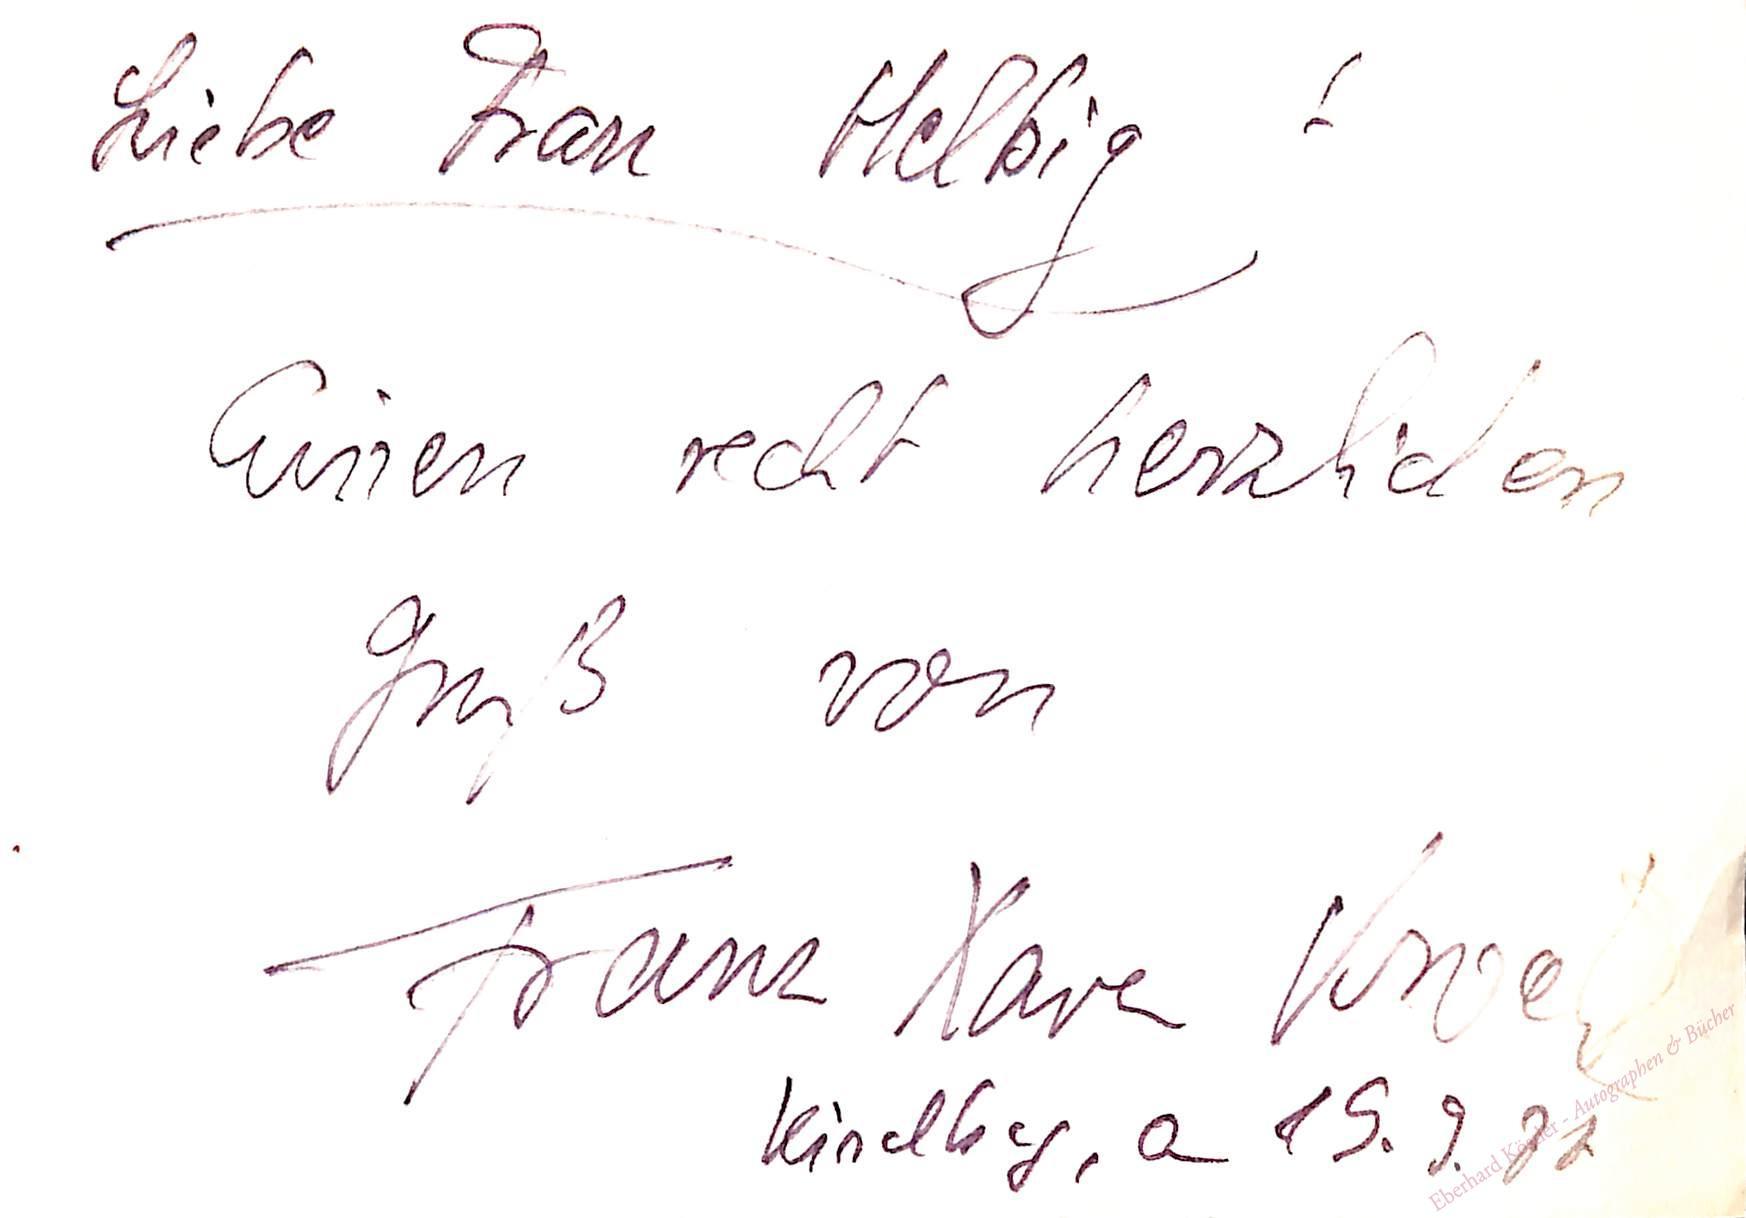 Liebe Frau Helbig!
Einen recht herzlichen
Gruß von
Franz Xaver
Kirchberg, a 19. 9. 72
Eberhard Köstler - Autographen & Bücher